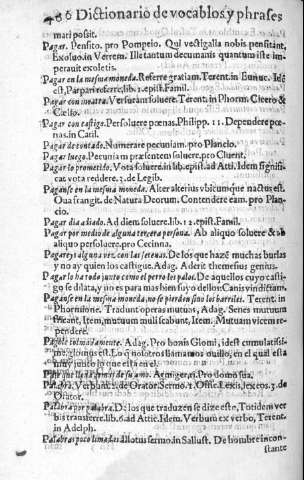 486 Dictionario de vocablos, y phrases
mari possit.
Pagar. Pensito. pro Pompeio. Qui vectigalla nobis pensitant,
Exoluo. in Verrem. Ille tantum decumanis quantum iste im-
perauit exoletis.
Pagar en la mesma moneda. Referre gratiam. Terent. in Eunuc. Idé
est, Par pari referre. lib. 1. epist. Famil.
Pagar con mohatra. Versuram soluere. Terent. in Phorm. Cicero &
Cælio.
Pagar con castigo. Persoluere pœnas. Philipp. 11. Dependere pœ-
nas. in Catil.
Pagar de contado. Numerare pecuniam. pro Plancio.
Pagar luego. Pecuniam præsentem soluere. pro Cluent.
Pagar lo prometido. Vota soluere. in lib. epist. ad Atti. Idem signifi-
cat vota reddere. 3. de Legib.
Paganse en la mesma moneda. Alter alterius vbicumque nactus est.
Oua frangit. de Natura Deorum. Contendere eam. pro Plan-
cio.
Pagar dia diado. Ad diem soluere. lib. 12. epist. Famil.
Pagar por medio de alguna tercera persona. Ab aliquo soluere & ab
aliquo persoluere. pro Cecinna.
Pagareys alguna vez, con las setenas. De los que hazé muchas burlas
y no ay quien los castigue. Adag. Aderit themesius genius.
Pagarlo ha todo junto como el perro los palos. De aquellos cuyo casti-
go se dilata, y no es para mas bien suyo dellos. Canis vindictam.
Paganse en la mesma moneda, no se pierdan sino los barriles. Terent. in
Phormione. Tradunt operas mutuas, Adag. Senes mutuum
fricant, Item, mutuum muli scabunt, Item. Mutuam vicem re-
pendere.
Adag. Pro bonis Glomi, id est cumulatissi-
me, glomus est. Lo q̃ nosotros llamamos ouillo, en el qual esta
muy junto lo que esta en el.
Armigeras. Pro domo sua.
Palabra. Verbum. 2. de Orator. Sermo. 1. Offic. Lexis, lexeos. 3. de
Orator.
Palabra por palabra. De los que traduzen se dize esto, Totidem ver-
bis transferre. lib. 6. ad Attic. Idem. Verbum ex verbo, Terent.
in Adelph.
Palabras poco limadas. Illotus sermo. in Sallust. De hombre incon-
stante